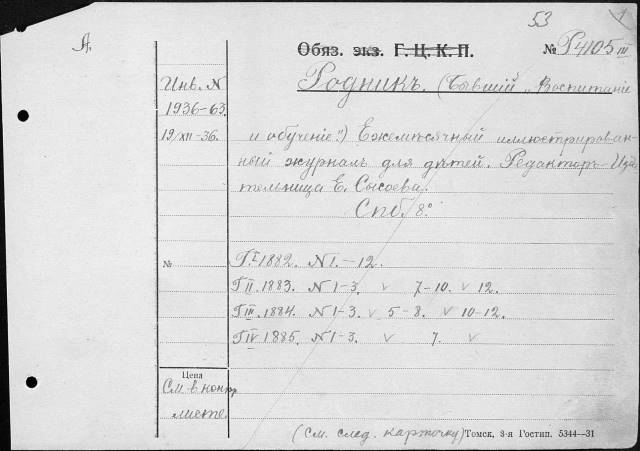 53 1
А.
Обяз. экз. Г. Ц. К. П. № Р4105 III
Инв. N
1936-63.
19/XII-36.
Родникъ. (Бывший „Воспитание
и обучение".) Ежемѣсячный иллюстрирован-
ный журналъ для дѣтей. Редакторъ-Изда-
тельница Е. Сысоева.
Спб. 8°
№
Г. I 1882. N 1.-12.
Г II. 1883. N 1-3. v 7-10. v 12.
Г III. 1884. N 1-3. v 5-8. v 10-12.
Г IV 1885. N 1-3. v 7. v
Цена
См. в контр
листе.
(См. след. карточку) Томск, 3-я Гостип. 5344—31